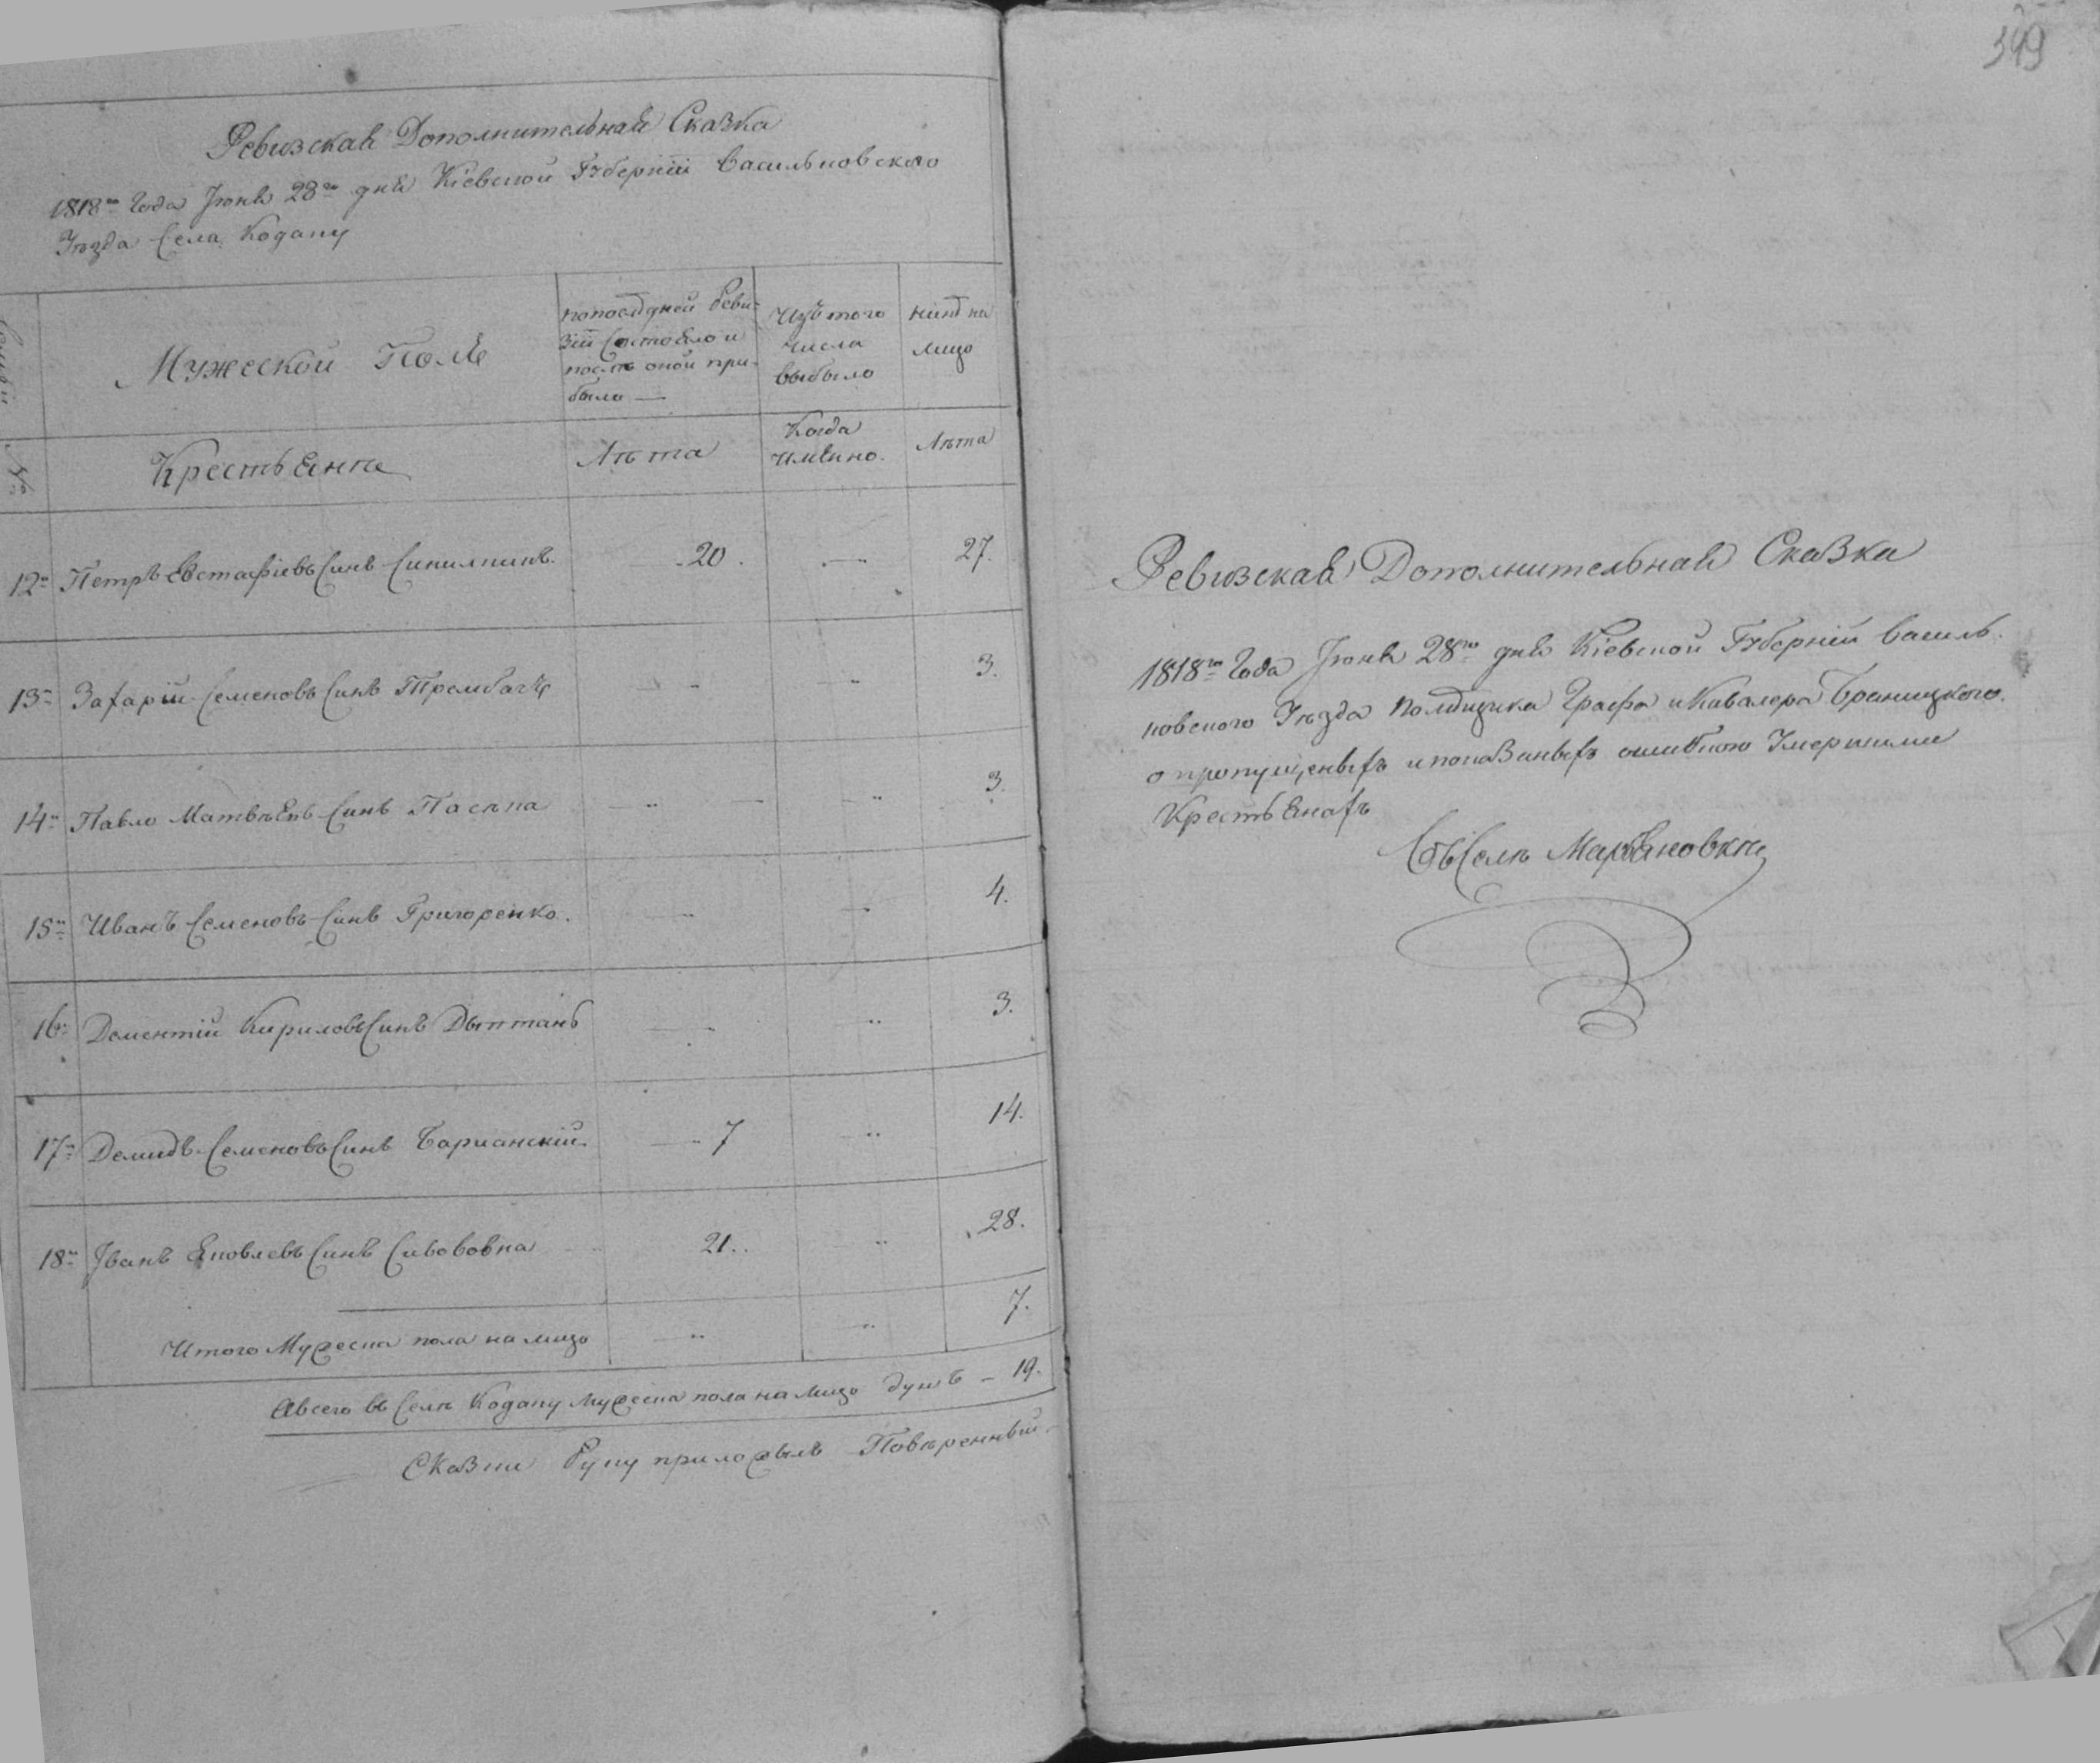 349
Ревизская Дополнительная Сказка
1818го Года Июня 28го дня Кіевской Губерніи Васильковского
Уѣзда Села Кодаку
Мужеской Полъ
попослѣдней Реви-
зіи Состояло и
послѣ оной при-
было —
Изъ того
числа
выбыло
нинѣ на
лицо
№
Крестьяне
Лѣта
Когда
имянно.
Лѣта
12. Петръ Евстафіевъ Синъ 20. — 27.
13. Захарій Семеновъ Синъ Трембачъ — — 3.
14. Павло Матвѣевъ Синъ Пасѣка — — 3.
15. Иванъ Семеновъ Синъ Григоренко. — — 4.
16. Дементій Кириловъ Синъ — — 3.
17. Демидъ Семеновъ Синъ — 7 — 14.
18. Іванъ Яковлевъ Синъ Сивововка 21. — 28.
Итого Мужеска пола на лицо — — 7.
Авсего въ Селѣ Кодаку Мужеска пола на лицо душъ — 19.
Сказки Руку приложылъ Повѣренный
Ревизская Дополнительная Сказка
1818го Года Июня 28го дня Кіевской Губерніи Василь-
ковского Уѣзда Помѣщика Графа и Кавалера Браницкого.
о пропущеныхъ ипоказаныхъ ошибкою Умершими
Крестьянахъ
Въ Селѣ Марьяновки